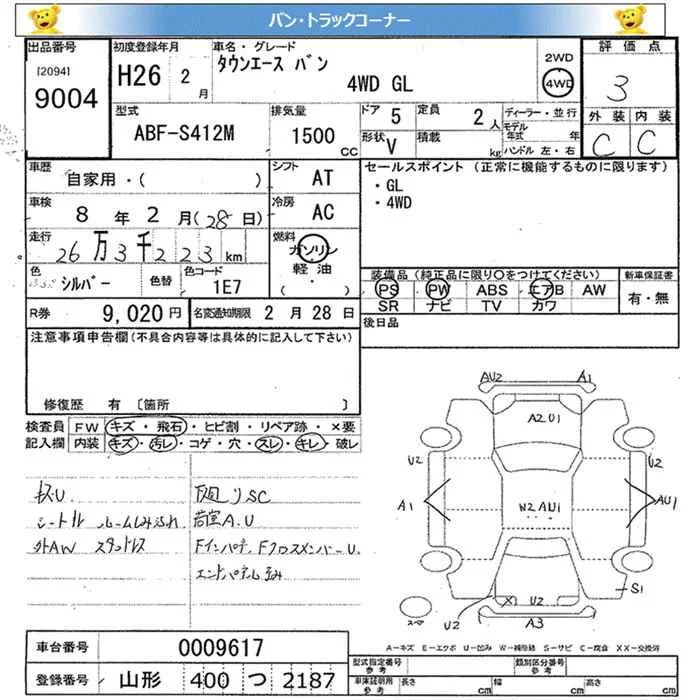 バン・トラックコーナー
出品番号
[2094]
9004
初度登録年月
H26 2月
車名・グレード
タウンエース バン
4WD GL
2WD
4WD
評価点
3
外装 内装
C C
型式
ABF-S412M
排気量
1500 CC
ドア 5
定員 2人
形状 V
積載 kg
ディーラー・並行
モデル年式 年
ハンドル 左・右
車歴
自家用・( )
シフト AT
車検
8年2月(28日)
冷房 AC
走行
26万3千223km
燃料
ガソリン
軽油
( ・ )
色 シルバー
色替
色コード 1E7
セールスポイント (正常に機能するものに限ります)
・GL
・4WD
装備品(純正品に限り○をつけてください)
PS PW ABS エアB AW
SR ナビ TV カワ
新車保証書
有・無
R券 9,020円
名変通知期限 2月28日
後日品
注意事項申告欄(不具合内容等は具体的に記入して下さい)
修復歴 有 [箇所 ]
検査員記入欄
FW キズ・飛石・ヒビ割・リペア跡・×要
内装 キズ・汚レ・コゲ・穴・スレ・キレ・破レ
下廻りSC
荷室A.U
外AW
Fインパネ、Fクロスメンバー U
エンドパネル歪み
AU2 A1
A2U1
U2 U2
A1 AU1
W2AU1
S1
X U2
U2 A3
スペ
A=キズ E=エクボ U=凹み W=補修跡 S=サビ C=腐食 XX=交換済
車台番号 0009617
登録番号 山形 400 つ 2187
型式指定番号 参考
類別区分番号 参考
車体証明書 参考
長さ cm 幅 cm 高さ cm